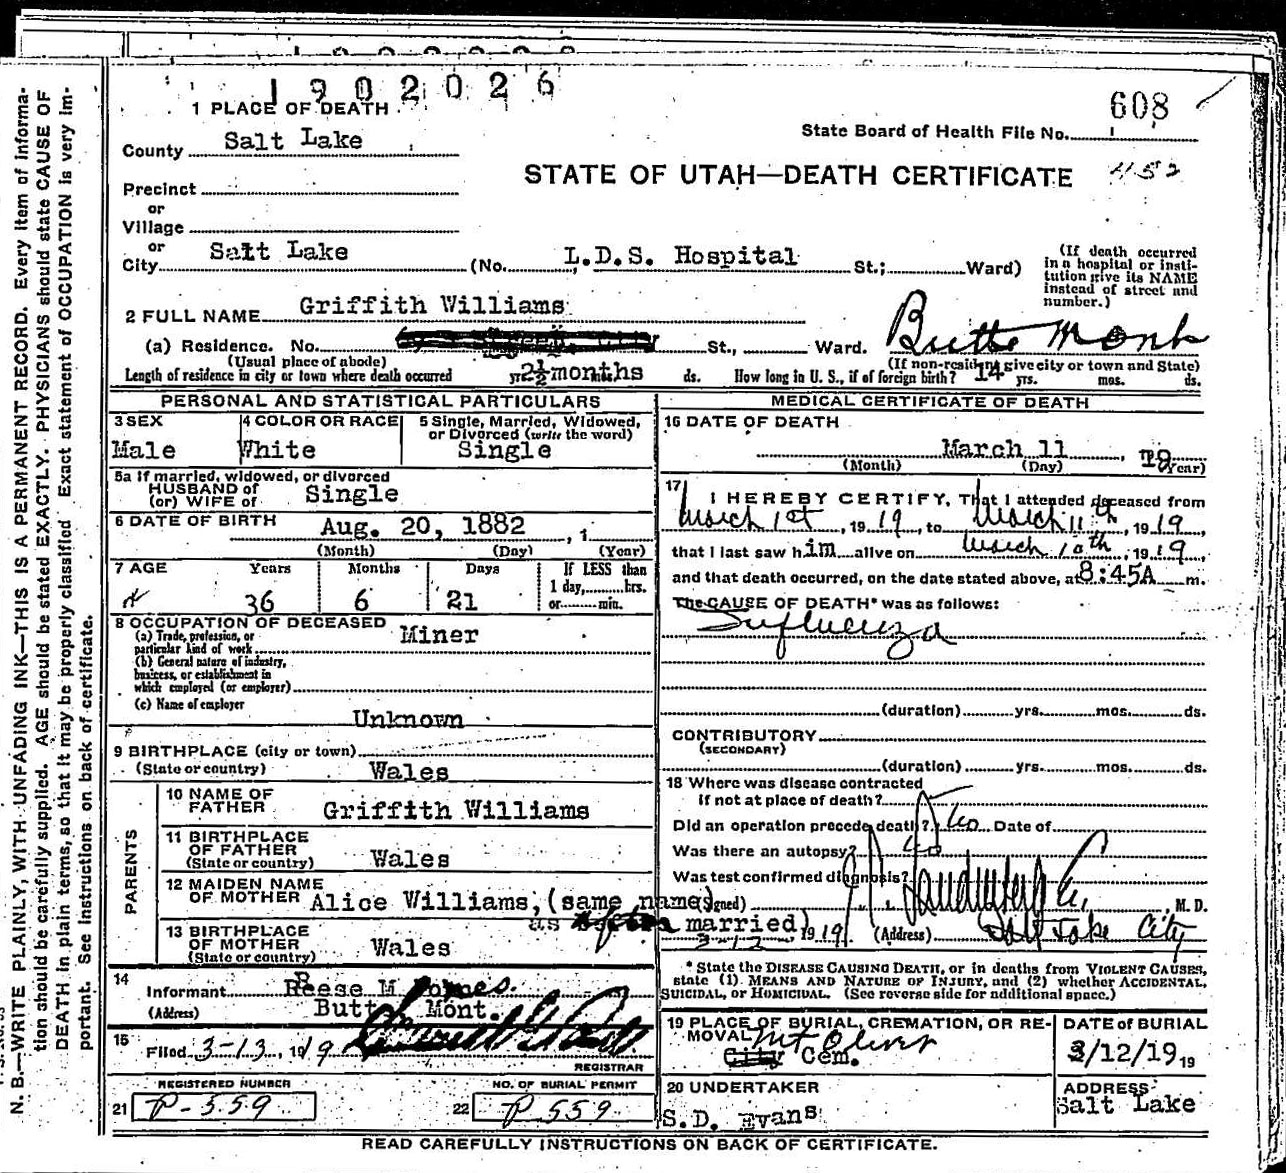 N. B.—WRITE PLAINLY, WITH UNFADING INK—THIS IS A PERMANENT RECORD. Every item of informa-
tion should be carefully supplied. AGE should be stated EXACTLY. PHYSICIANS should state CAUSE OF
DEATH in plain terms, so that it may be properly classified. Exact statement of OCCUPATION is very im-
portant. See instructions on back of certificate.
1902026
1 PLACE OF DEATH
608
County Salt Lake
State Board of Health File No.
STATE OF UTAH—DEATH CERTIFICATE 452
Precinct
or
Village
or
City Salt Lake (No. L.D.S. Hospital St.; Ward)
(If death occurred
in a hospital or insti-
tution give its NAME
instead of street and
number.)
2 FULL NAME Griffith Williams
(a) Residence. No. St., Ward. Butte Mont
(Usual place of abode) (If non-resident give city or town and State)
Length of residence in city or town where death occurred yrs. 2½ months ds. How long in U. S., if of foreign birth? 14 yrs. mos. ds.
PERSONAL AND STATISTICAL PARTICULARS
3 SEX
Male
4 COLOR OR RACE
White
5 Single, Married, Widowed,
or Divorced (write the word)
Single
5a If married, widowed, or divorced
HUSBAND of
(or) WIFE of Single
6 DATE OF BIRTH Aug. 20, 1882, 1
(Month) (Day) (Year)
7 AGE Years Months Days If LESS than
1 day, hrs.
or min.
36 6 21
8 OCCUPATION OF DECEASED
(a) Trade, profession, or
particular kind of work Miner
(b) General nature of industry,
business, or establishment in
which employed (or employer)
(c) Name of employer
Unknown
9 BIRTHPLACE (city or town)
(State or country) Wales
PARENTS
10 NAME OF
FATHER Griffith Williams
11 BIRTHPLACE
OF FATHER
(State or country) Wales
12 MAIDEN NAME
OF MOTHER Alice Williams, (same name
as after married)
13 BIRTHPLACE
OF MOTHER
(State or country) Wales
14
Informant Reese M
(Address) Butte Mont.
15
Filed 3-13, 1919
REGISTRAR
REGISTERED NUMBER
21 P-559
NO. OF BURIAL PERMIT
22 P 559
MEDICAL CERTIFICATE OF DEATH
16 DATE OF DEATH
March 11, 19
(Month) (Day) (Year)
17
I HEREBY CERTIFY, That I attended deceased from
March 1st, 1919, to March 11th, 1919
that I last saw him alive on March 10th, 1919,
and that death occurred, on the date stated above, at 8:45A m.
The CAUSE OF DEATH* was as follows:
Influenza
(duration) yrs. mos. ds.
CONTRIBUTORY
(SECONDARY)
(duration) yrs. mos. ds.
18 Where was disease contracted
if not at place of death?
Did an operation precede death? No Date of
Was there an autopsy? No
Was test confirmed diagnosis?
(Signed) M. D.
3-12, 1919 (Address) Salt Lake City
* State the DISEASE CAUSING DEATH, or in deaths from VIOLENT CAUSES,
state (1) MEANS AND NATURE OF INJURY, and (2) whether ACCIDENTAL,
SUICIDAL, or HOMICIDAL. (See reverse side for additional space.)
19 PLACE OF BURIAL, CREMATION, OR RE-
MOVAL Mt Olivet
City Cem.
DATE of BURIAL
3/12/19 19
20 UNDERTAKER
S.D. Evans
ADDRESS
Salt Lake
READ CAREFULLY INSTRUCTIONS ON BACK OF CERTIFICATE.